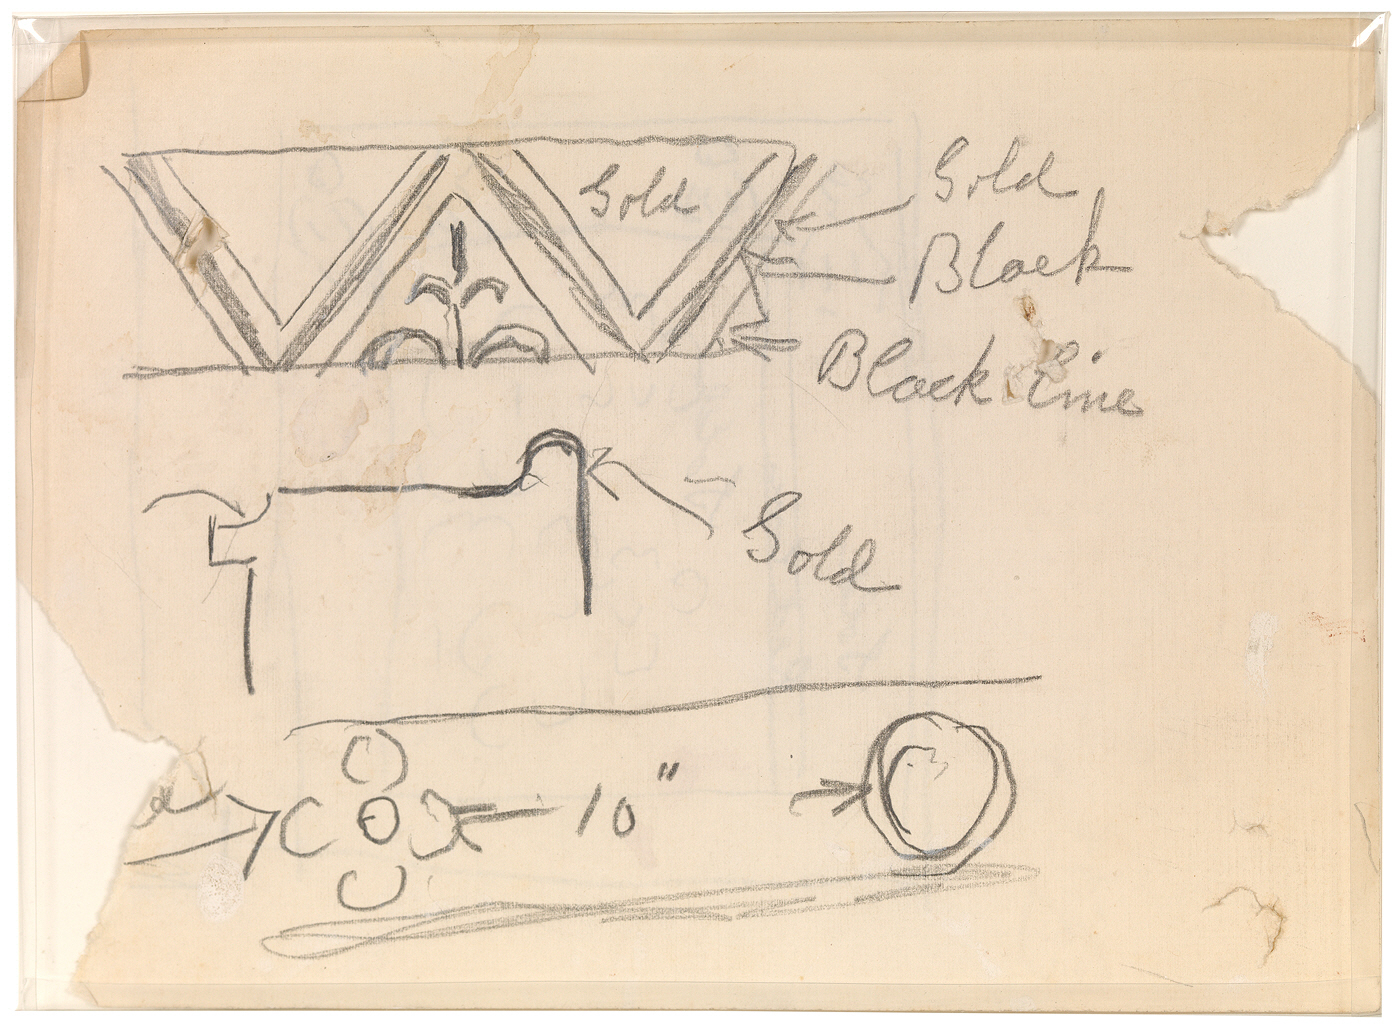 Gold
Gold
Black
Black line
Gold
10"